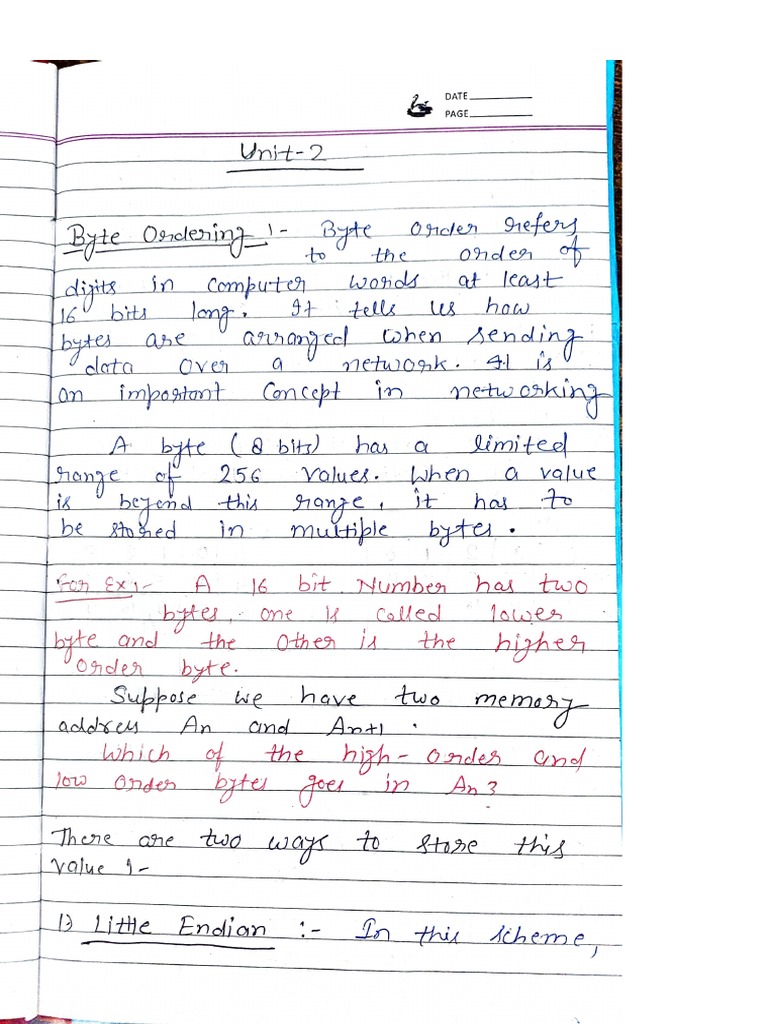 DATE
PAGE
Unit-2
Byte Ordering :- Byte order refers
to the order of
digits in computer words at least
16 bits long. It tells us how
bytes are arranged when sending
data over a network. It is
an important concept in networking
A byte (8 bits) has a limited
range of 256 values. When a value
is beyond this range, it has to
be stored in multiple bytes.
For Ex:- A 16 bit Number has two
bytes, one is called lower
byte and the other is the higher
order byte.
Suppose we have two memory
address An and An+1.
Which of the high-order and
low order bytes goes in An?
There are two ways to store this
value :-
1) Little Endian :- In this scheme,